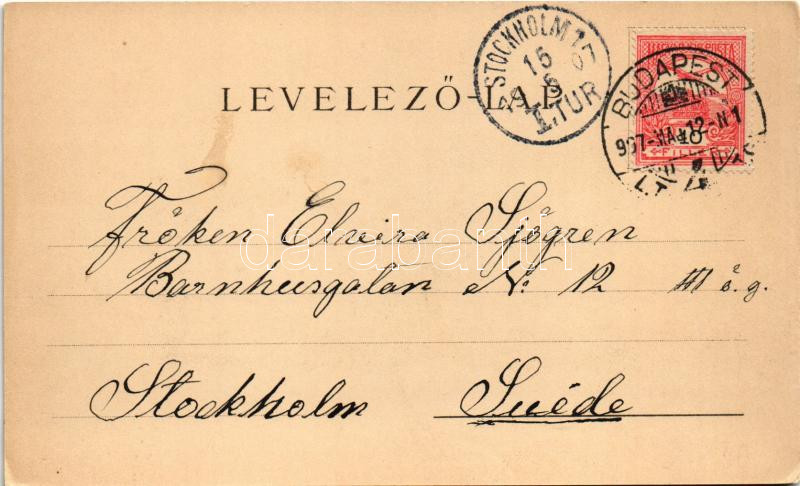 LEVELEZŐ-LAP
STOCKHOLM
15 5 07
1.TUR
BUDAPEST
907-MÁJ 12-N1
10
FILLÉR
Fröken Elvira Sjögren
Barnhusgatan No: 12 III ö. g.
Stockholm Suède
darabanth